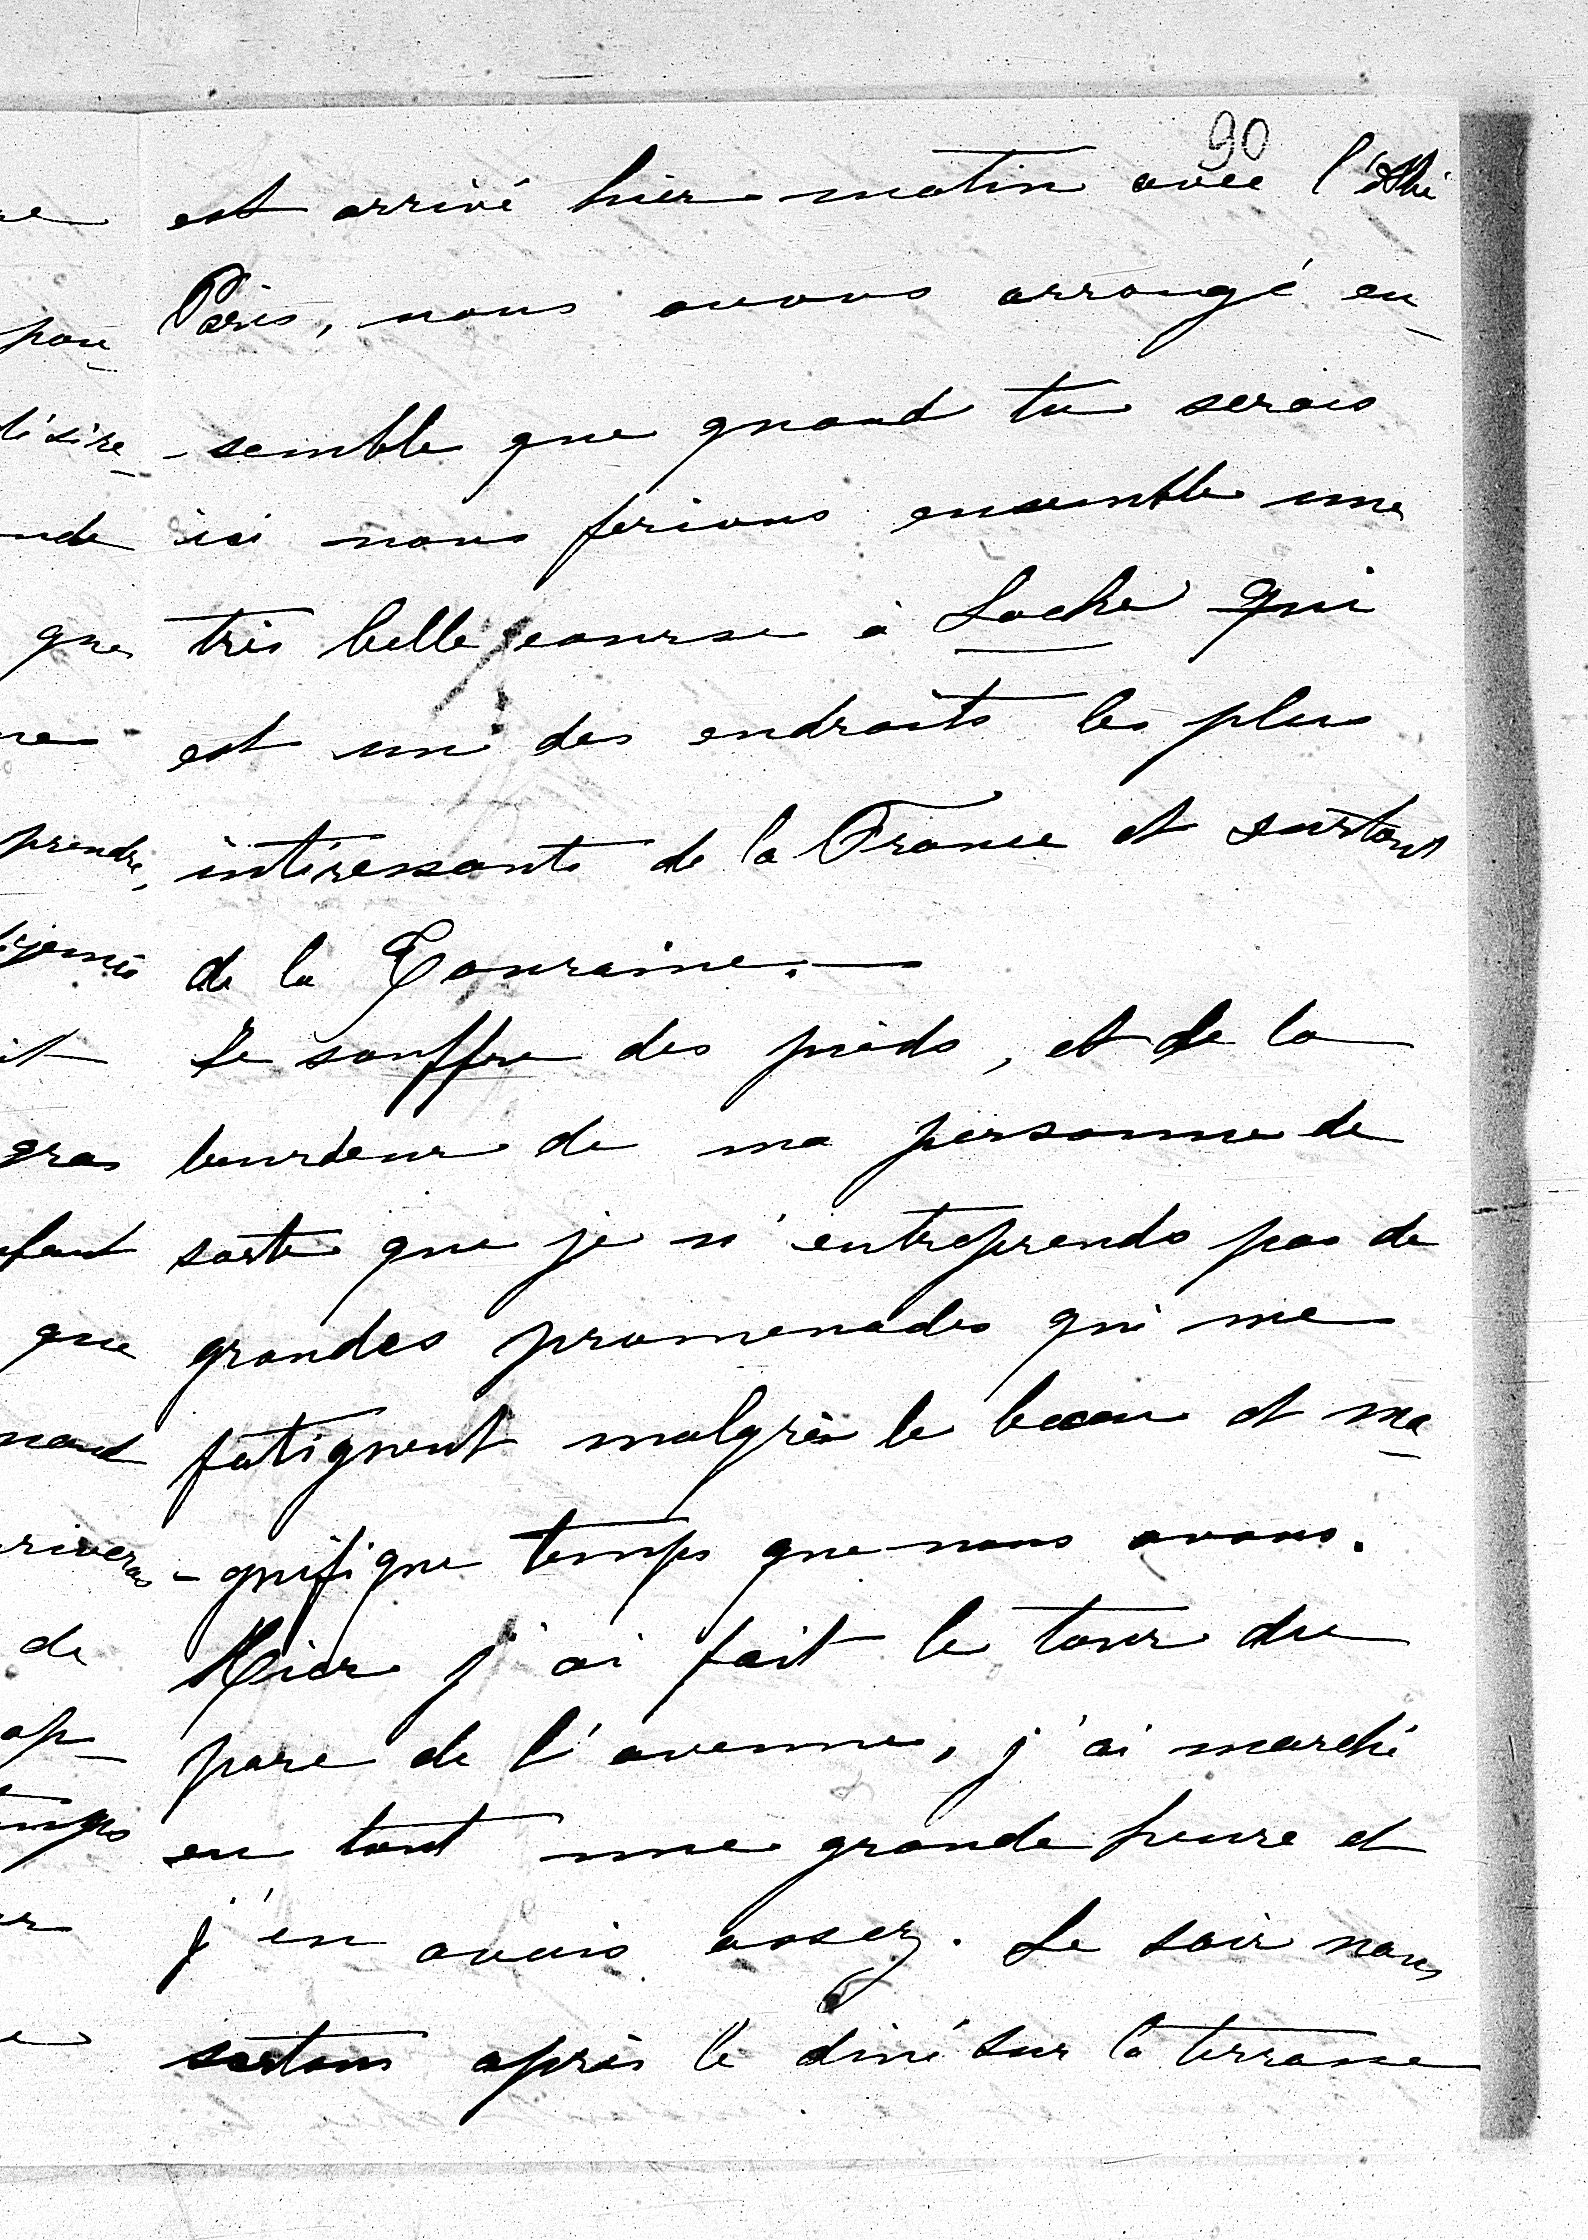 90
est arrivé hier matin avec l'Abé
Pâris, nous avons arrangé en-
-semble que quand tu serais
ici nous ferions ensemble une
très belle course à Loche qui
est un des endroits les plus
intéressants de la France et surtout
de la Touraine.
Je souffre des pieds, et de la
lourdeur de ma personne de
sorte que je n'entreprends pas de
grandes promenades qui me
fatignent malgrès le beau et ma-
-gnifique temps que nous avons.
Hier j'ai fait le tour du
parc de l'avenue, j'ai marché
en tout une grande heure et
j'en avais assez. Le soir nous
sortons après le diné sur la terrasse
pou-
désire-
que
prendre,
gras
que
de